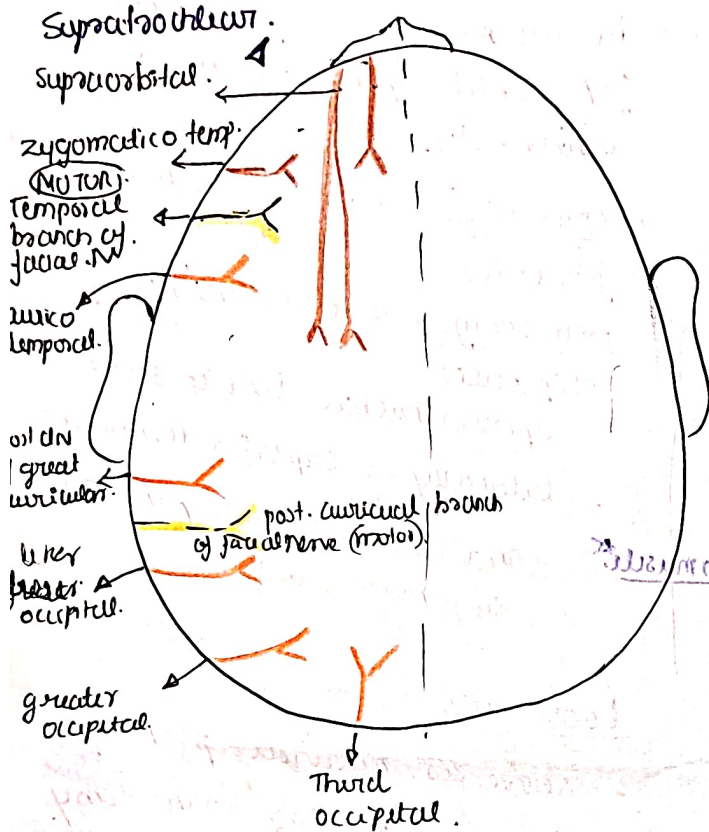 Supratrochlear.
Supraorbital.
zygomatico temp.
MOTOR.
Temporal
branch of
facial.N
aurico
temporal.
great
auricular.
post. auricual branch
of facial nerve (motor).
occipital.
greater
occipital.
Third
occipital.